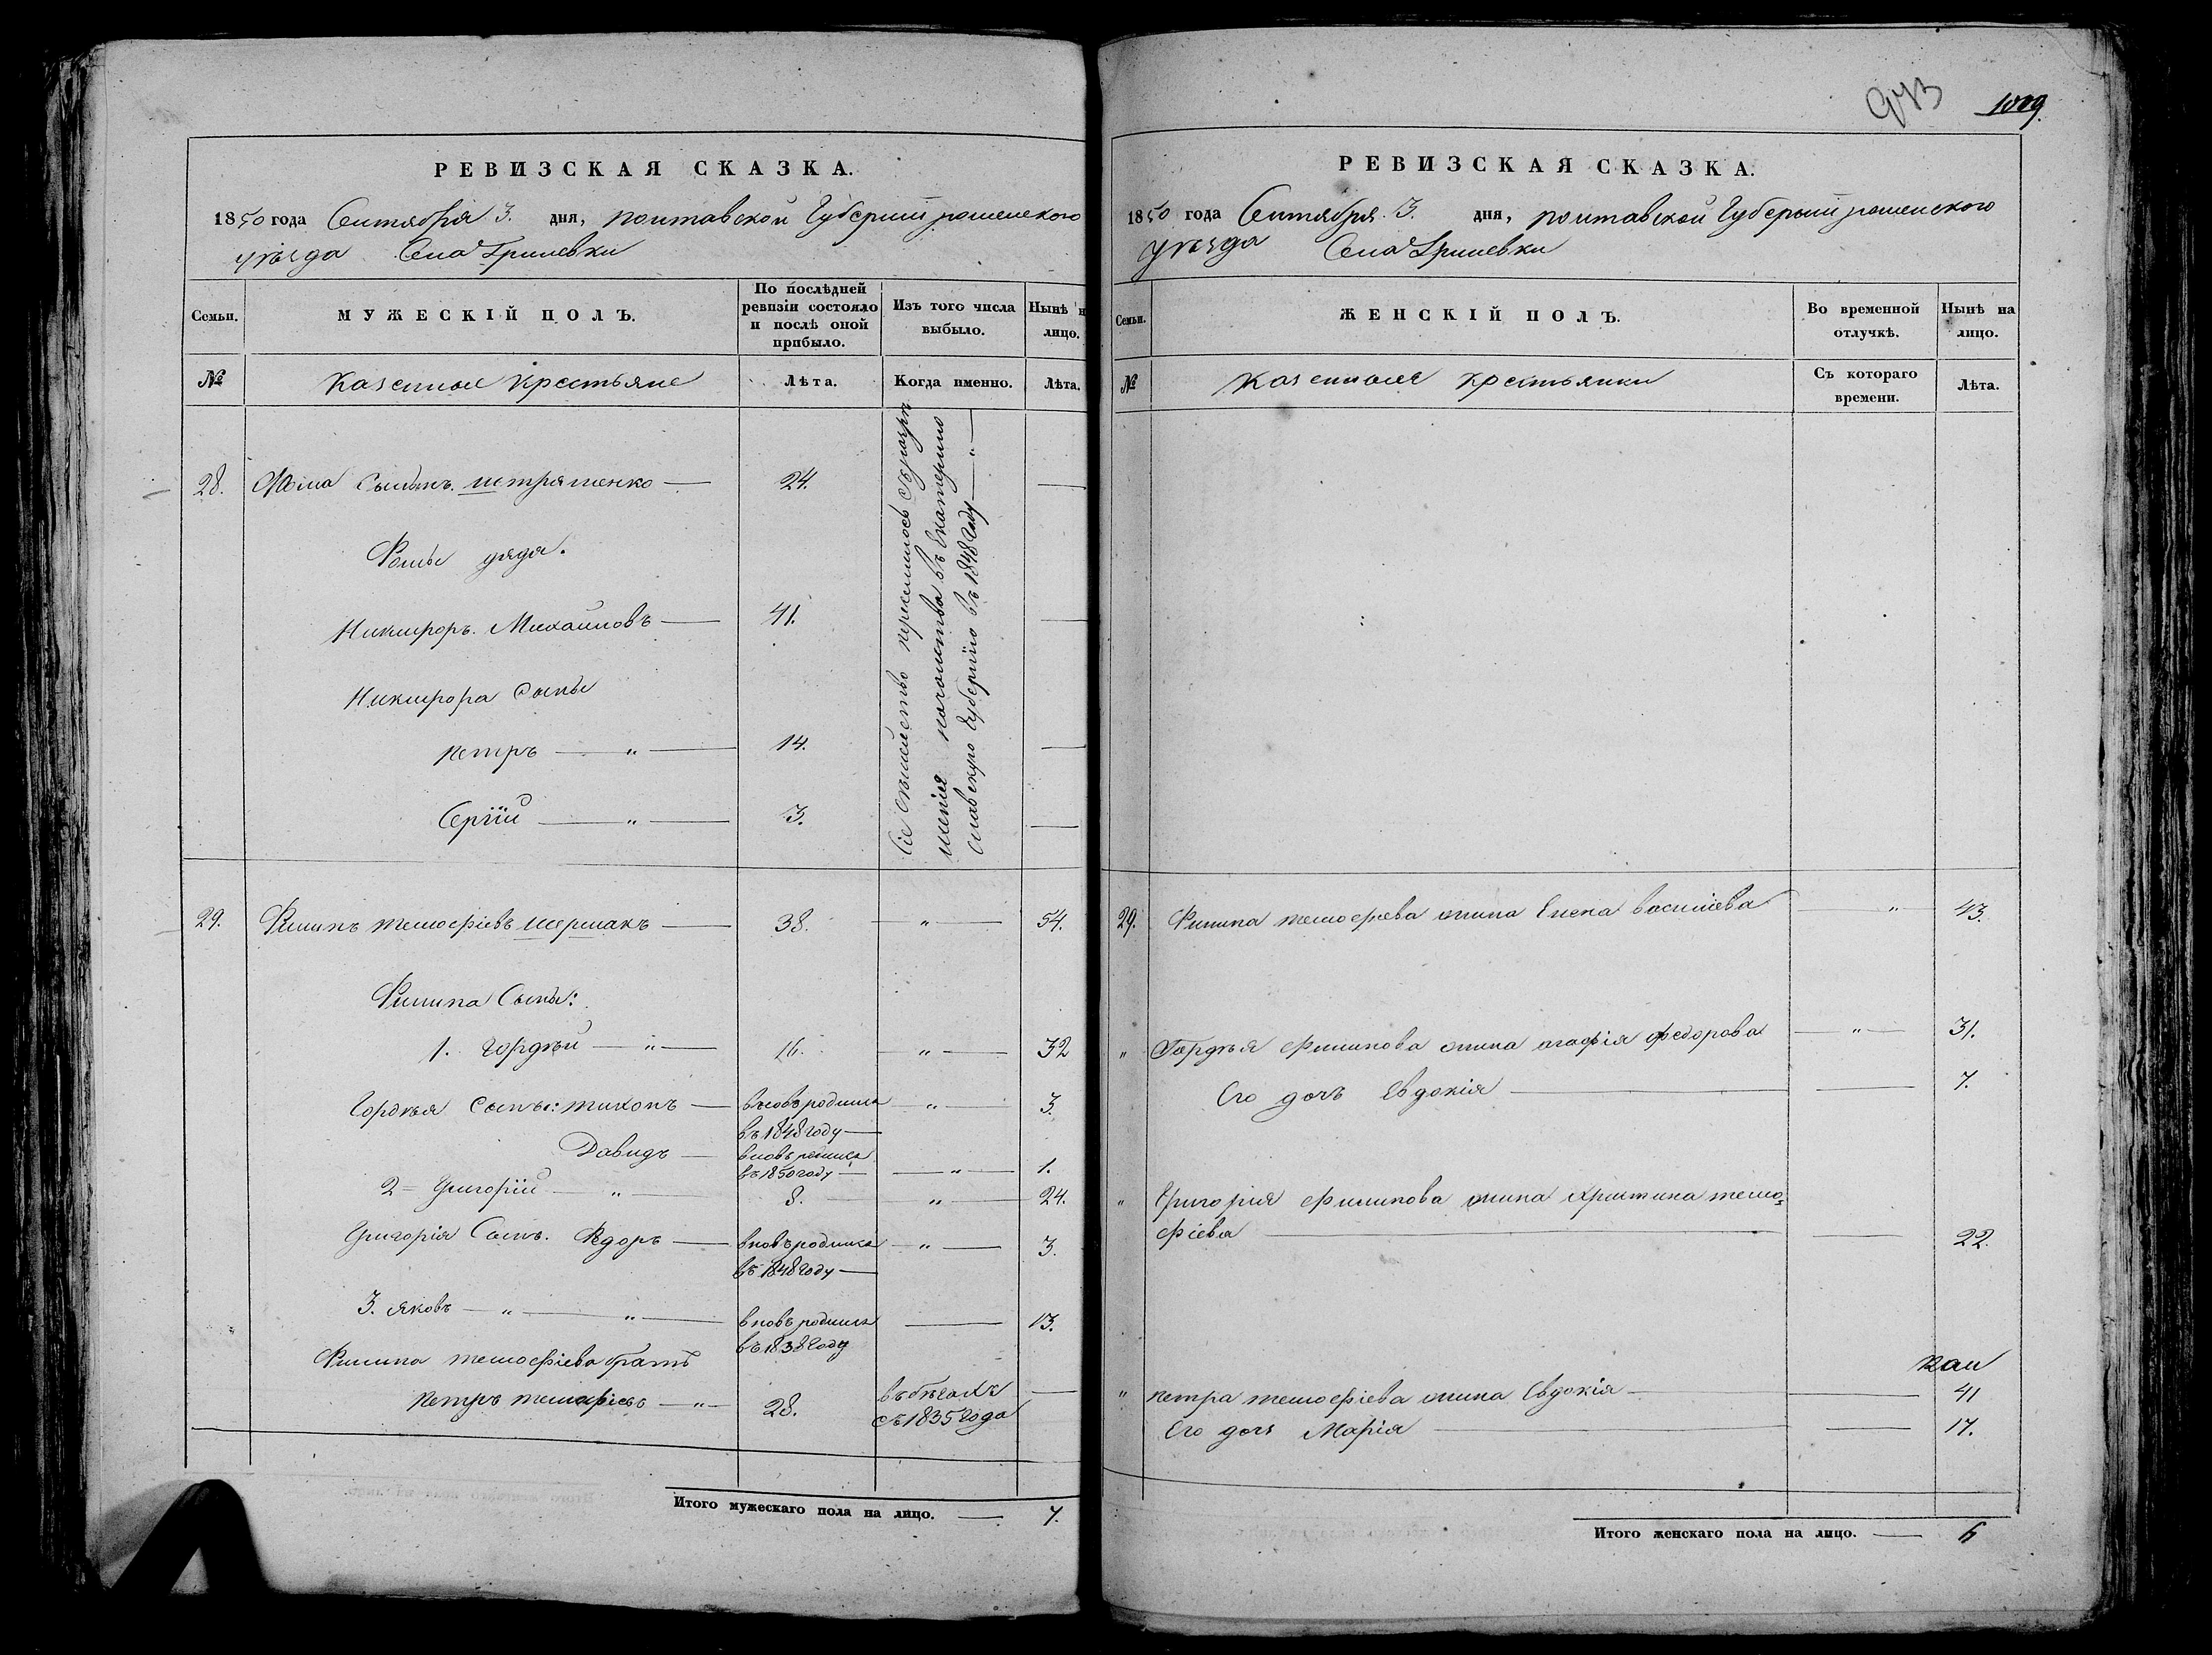 973 1009.
РЕВИЗСКАЯ СКАЗКА.
1850 года Сентября 3. дня, полтавской Губернии роменского
уѣзда Села Гриневки
Семьи. МУЖЕСКІЙ ПОЛЪ. По послѣдней ревизіи состояло и послѣ оной прибыло. Изъ того числа выбыло. Нынѣ на лицо.
№ Казенные крестьяне Лѣта. Когда именно. Лѣта.
28. Фома Сем. Петряшенко — 24. —
Фомы дядя.
Никифоръ Михайловъ — 41. —
Никифора Сыны
петръ — " — 14. —
Сергій — " — 3. —
Сіе Семейство переселилось
въ Екатерино
славскую Губернію въ 1848 Году — " —
29. Филипъ тимофіевъ шермакъ — 38. — " — 54.
Филипа Сыны:
1. Гордѣй — " — 16. — " — 32
Гордѣя Сыны: тихонъ — вновь родился — " — 3.
въ 1848 году —
Давидъ — вновь родился
въ 1850 году — — " — 1.
2 = Григорій — " — 8. — " — 24.
Григорія Сынъ. Федоръ — вновь родился — " — 3.
въ 1848 году —
3. яковъ — " — " — вновь родился — 13.
въ 1838 году
Филипа тимофіева братъ
петръ тимофіевъ — " — 28. въ бѣгахъ —
съ 1835 года
Итого мужескаго пола на лицо. — 7.
РЕВИЗСКАЯ СКАЗКА.
1850 года Сентября 3. дня, полтавской Губернии роменского
уѣзда Села Гриневки
Семьи. ЖЕНСКІЙ ПОЛЪ. Во временной отлучкѣ. Нынѣ на лицо.
№ Казенные крестьянки Съ котораго времени. Лѣта.
29. Филипа тимофеева жина Елена василиева — " — 43.
" Гордѣя филипова жина агафія федорова — " — 31.
Его дочь Евдокія — — 7.
" Григорія филипова жина христина тимо=
фіева — — 22.
" петра тимофіева жина Евдокія — — 41
Его дочь Марія — — 17.
Итого женскаго пола на лицо. — 6